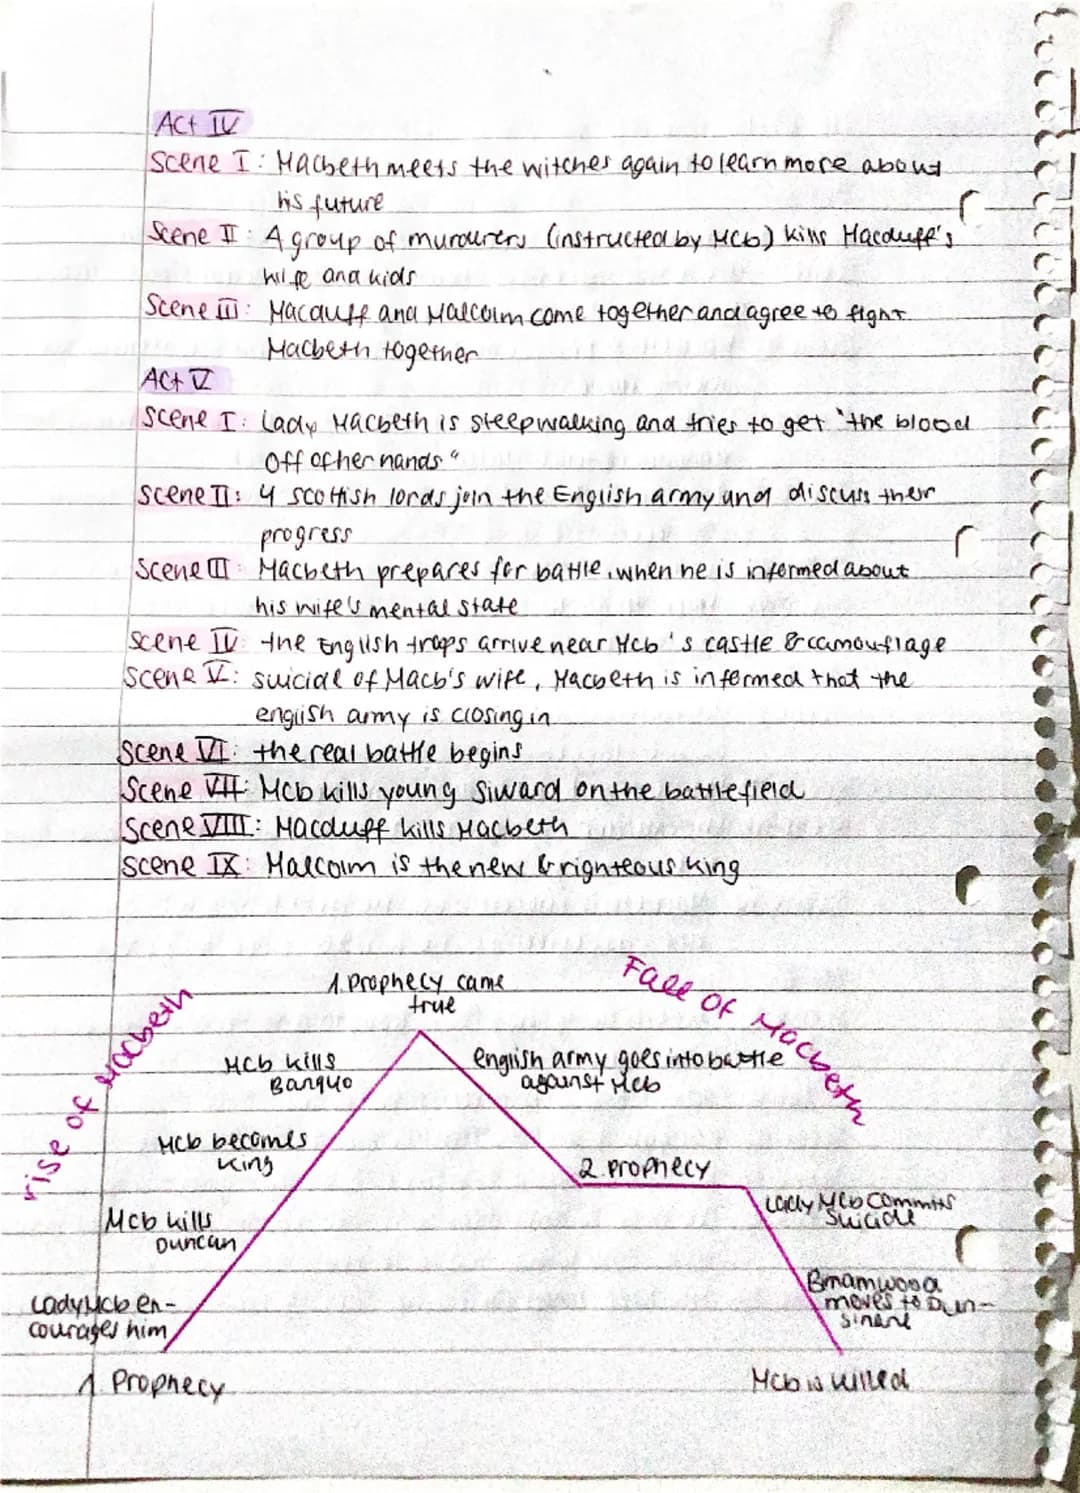 Act IV
Scene I: Macbeth meets the witches again to learn more about
his future
Scene II: A group of murderers (instructed by Mcb) kills Macduff's
wife and kids
Scene III: Macduff and Malcolm come together and agree to fight
Macbeth together
Act V
Scene I: Lady Macbeth is sleepwalking and tries to get "the blood
off of her hands"
Scene II: 4 scottish lords join the English army and discuss their
progress
Scene III: Macbeth prepares for battle, when he is informed about
his wife's mental state
Scene IV: the English trops arrive near Mcb's castle & camouflage
Scene V: suicide of Macb's wife, Macbeth is informed that the
english army is closing in
Scene VI: the real battle begins
Scene VII: Mcb kills young Siward on the battlefield
Scene VIII: Macduff kills Macbeth
Scene IX: Malcolm is the new & righteous king
rise of Macbeth
Fall of Macbeth
1. Prophecy came
true
Mcb kills
Banquo
english army goes into battle
against Mcb
Mcb becomes
king
2. prophecy
Mcb kills
Duncan
Lady Mcb commits
suicide
Lady Mcb en-
courages him
Birnamwood
moves to Dun-
sinane
1. Prophecy
Mcb is killed